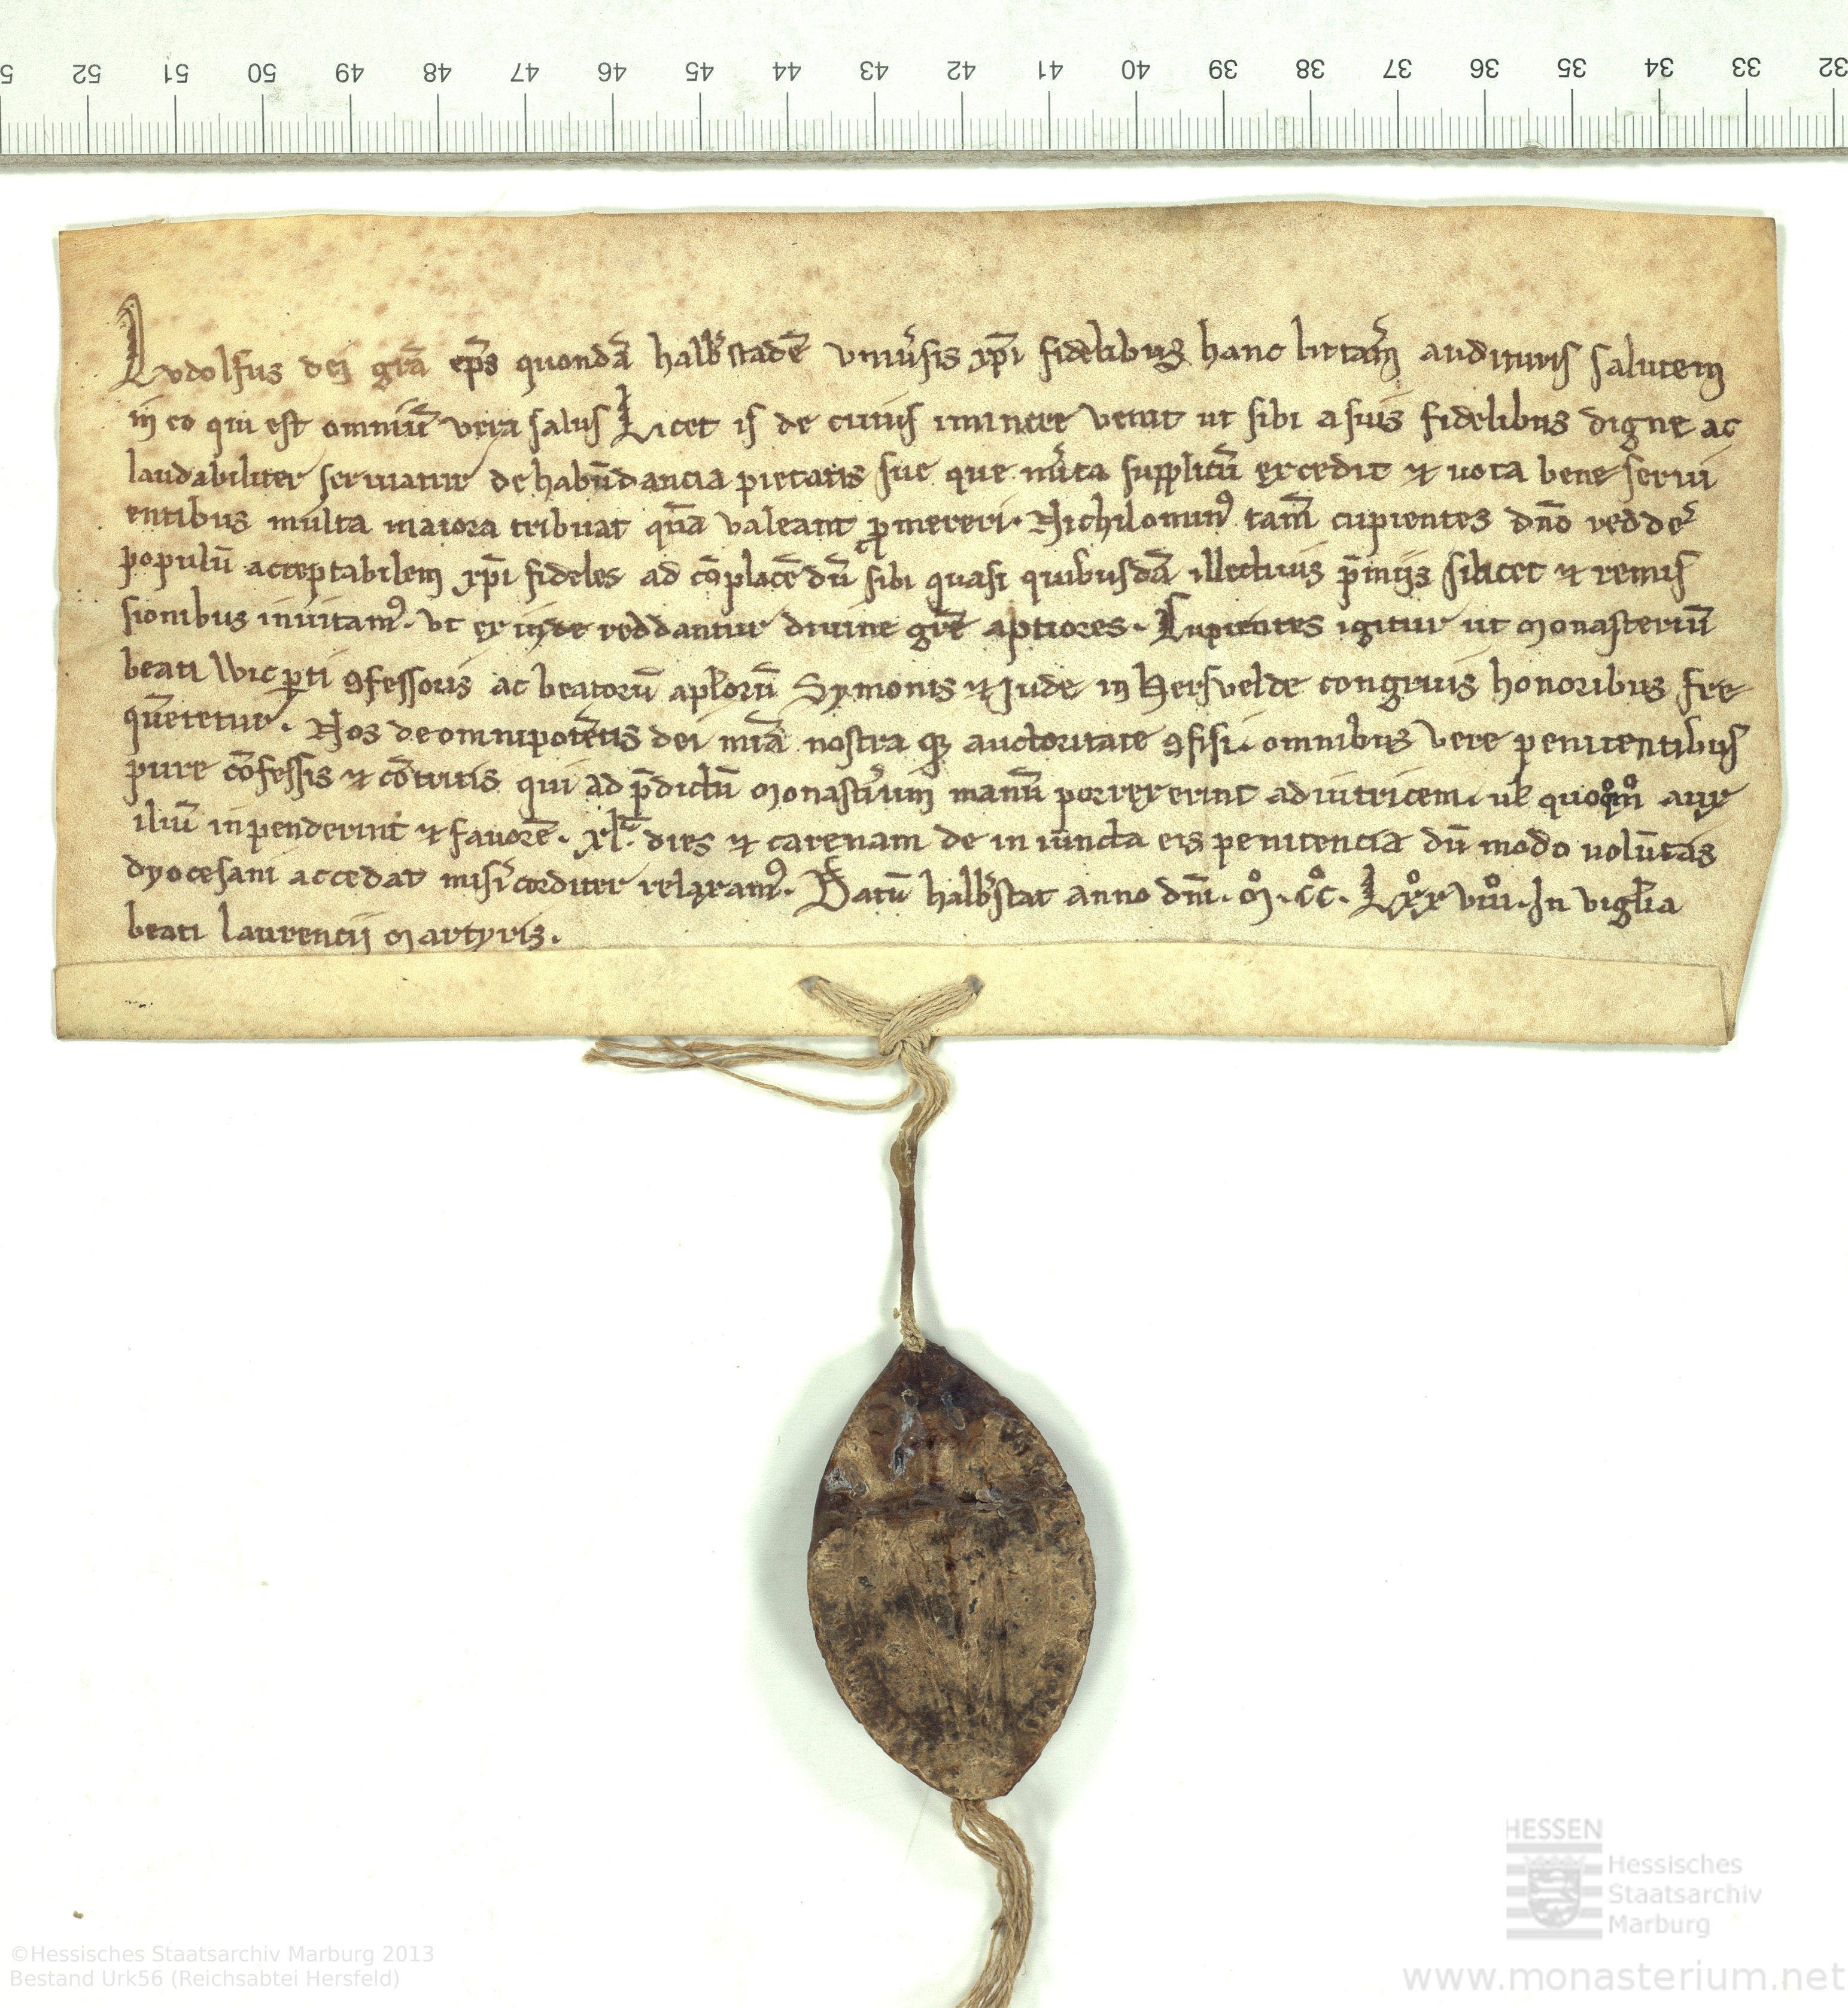 52 51 50 49 48 47 46 45 44 43 42 41 40 39 38 37 36 35 34 33 32
Lvdolfus dei gr̄a ep̄s quondā halb̛stadē vniưsis xp̄i fidelibus hanc litt̛am audituris salutem
in eo qui est omniū vera salus Licet is de cuius munere venit ut sibi a suis fidelibus digne ac
laudabiliter seruiatur de habūdancia pietatis sue que mi̛ta supplicū excedit ⁊ uota bene serui
entibus multa maiora tribuat quā valeant ꝓmereri. Nichilomin᷒ tam̄ cupientes dn̄o redde̛
populū acceptabilem xp̄i fideles ad cōplacēdū sibi quasi quibusdā illectiuis p̄mijs silicet ⁊ remis
sionibus inuitam᷒. vt ex inde reddantur diuine gr̄e aptiores. Cupientes igitur ut monasteriū
beati Wicꝑti ꝯfessoris ac beatorū apl̄orū Symonis ⁊ Jude in Hersvelde congruis honoribus fre
quētetur. Nos de omnipotētis dei mīa nostra qꝫ auctoritate ꝯfisi. omnibus vere penitentibus
pure cōfessis ⁊ cōtritis qui ad p̄dictū monast̛ium manū porrexerint adiutricem. ul̄ quoqͦmͦ aux
iliū inpenderint ⁊ fauorē. xl.ͣ dies ⁊ carenam de in iūncta eis penitencia dū modo uolūtas
dyocesani accedat mis̛icorditer relaxam᷒. Datū halb̛stat anno dn̄i. mͦ. ccͦ. Lxxͦ viiiͦ. In vigl̄ia
beati laurencii martyris.
HESSEN
Hessisches
Staatsarchiv
Marburg
©Hessisches Staatsarchiv Marburg 2013
Bestand Urk56 (Reichsabtei Hersfeld)
www.monasterium.net